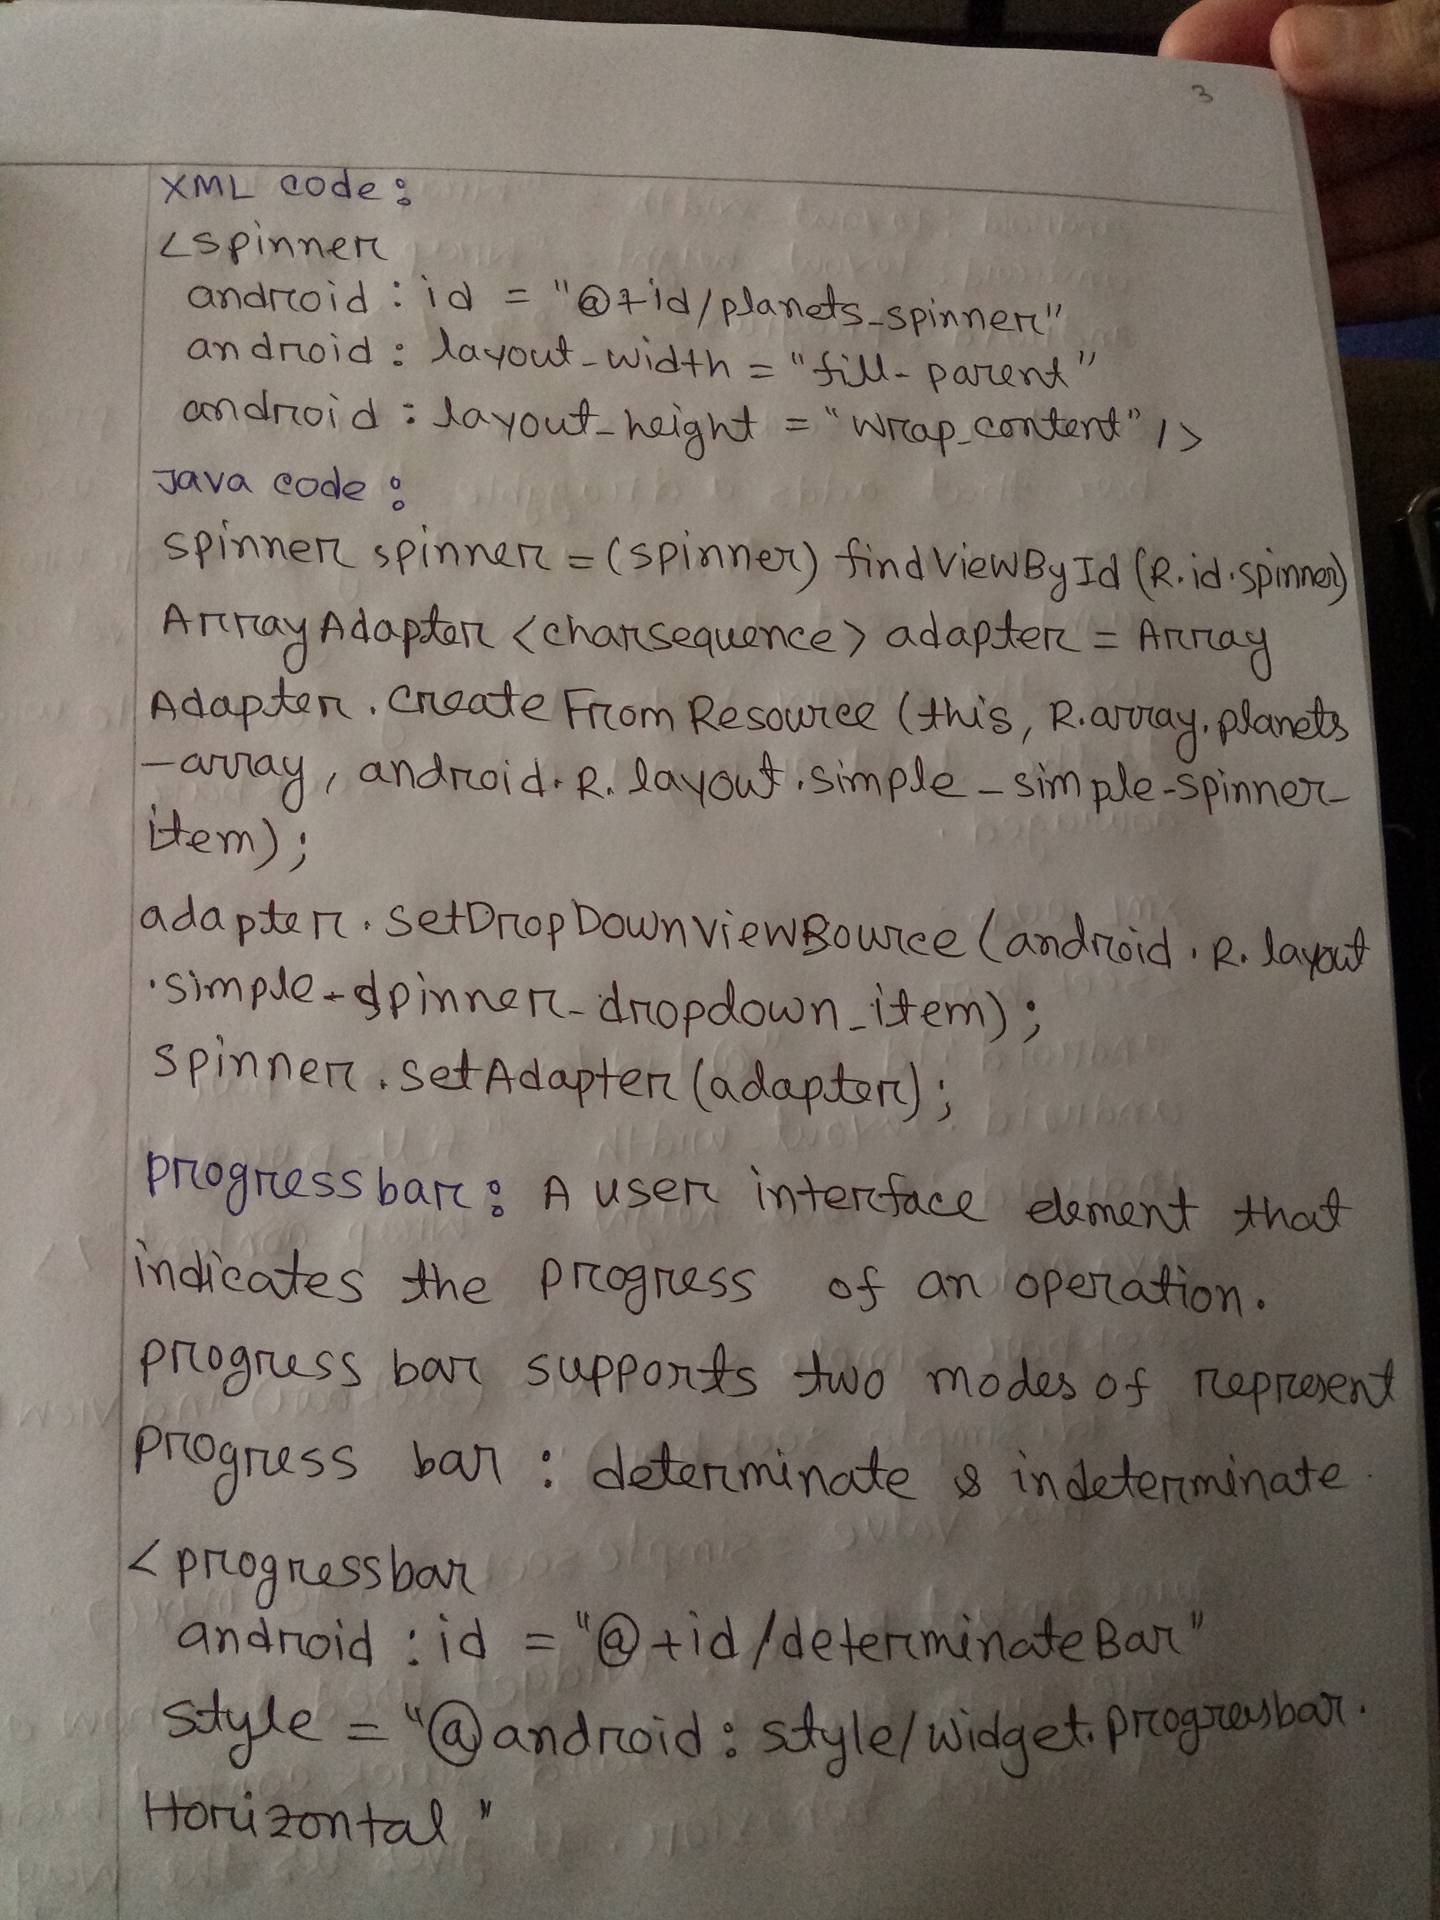 3
XML code:
<spinner
android : id = "@+id/planets_spinner"
android : layout-width = "fill-parent"
android : layout-height = "wrap_content" />
Java code:
spinner spinner = (spinner) findViewById (R.id.spinner)
ArrayAdapter <charsequence> adapter = Array
Adapter.createFromResource (this, R.array.planets
-array, android.R.layout.simple_simple-spinner-
item);
adapter.setDropDownviewBource (android.R.layout
.simple-spinner-dropdown_item);
spinner.setAdapter (adapter);
progressbar: A user interface element that
indicates the progress of an operation.
progress bar supports two modes of represent
progress bar : determinate & indeterminate.
<progressbar
android : id = "@+id/determinateBar"
style = "@android : style/widget.progressbar.
Horizontal"